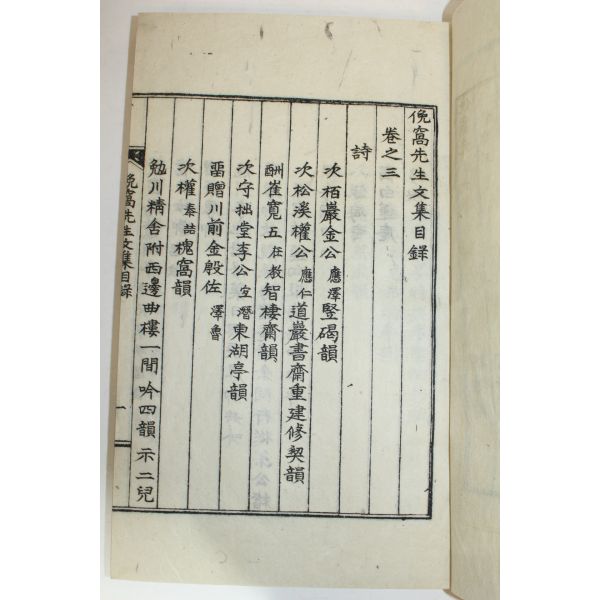 俛窩先生文集目錄
卷之三
詩
次栢巖金公應澤竪碣韻
次松溪權公應仁道巖書齋重建修契韻
酬崔寬五在敎智棲齋韻
次守拙堂李公宜潛東湖亭韻
留贈川前金殷佐澤魯
次權泰喆槐窩韻
勉川精舍附西邊曲樓一間吟四韻示二兒
俛窩先生文集目錄
一